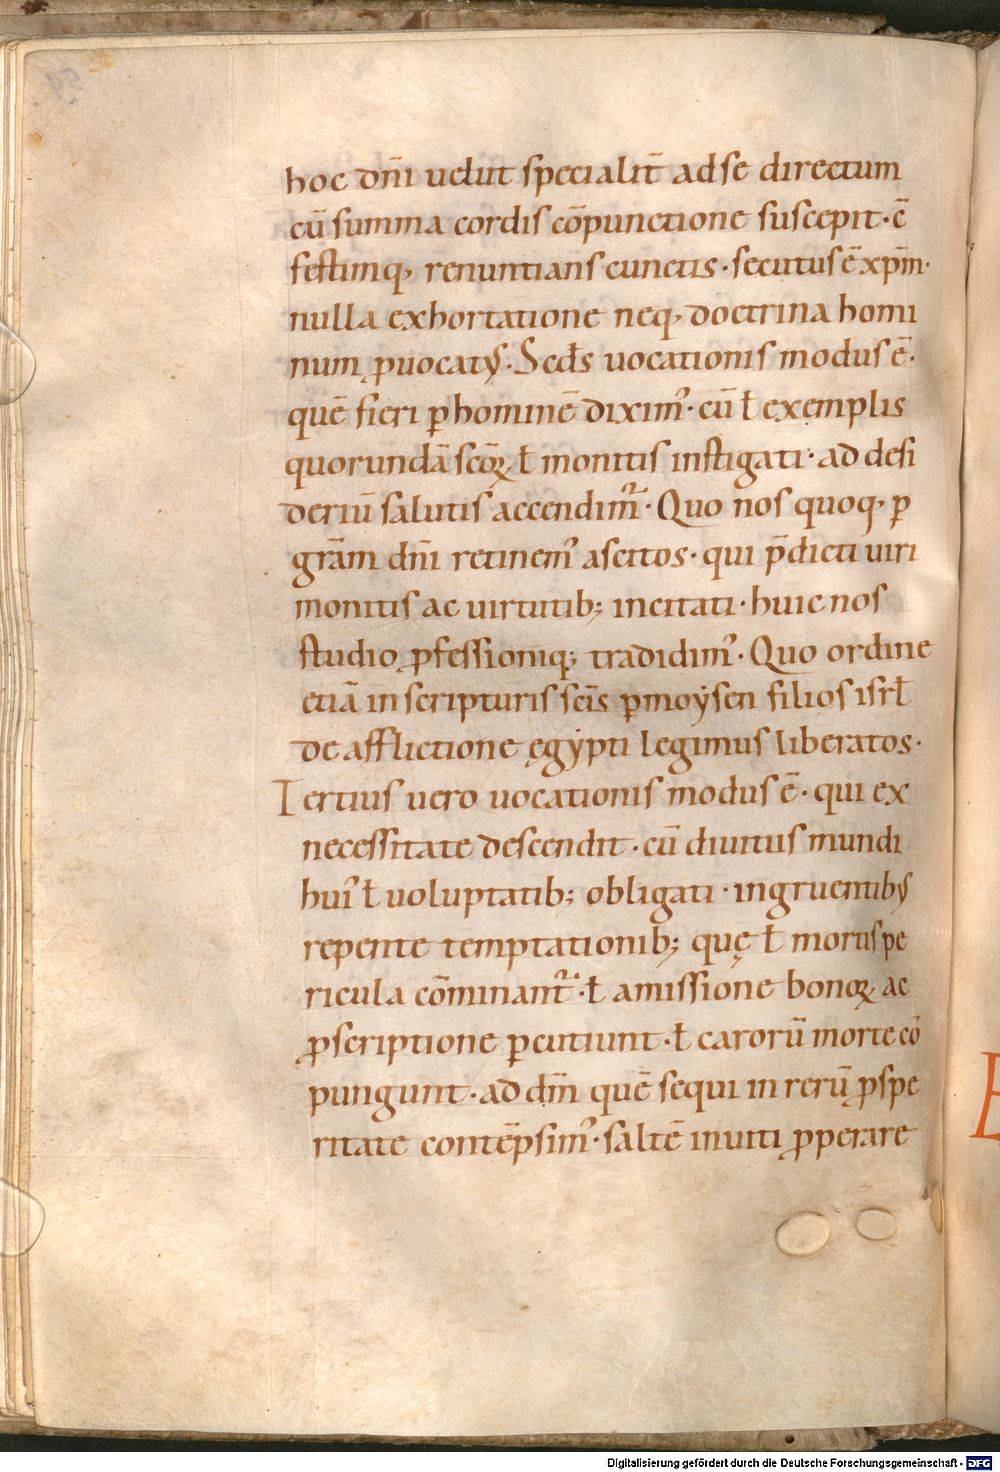 hoc dn̄i uelut specialit̄ ad se directum
cū summa cordis cōpunctione suscepit · ē
festinq, renuntians cunctis · secutus ē xp̄m ·
nulla exhortatione neq, doctrina homi
num ꝓuocatꝰ · Scd̄s uocationis modus ē ·
quē fieri ꝑ hominē diximꝰ · cū ł exemplis
quorundā sc̄oꝝ ł monitis instigati · ad desi
deriū salutis accendimr̄ · Quo nos quoq, ꝑ
gr̄am dn̄i retinemꝰ ascitos · qui p̄dicti uiri
monitis ac uirtutib; incitati · huic nos
studio ꝓfessioniq; tradidimꝰ · Quo ordine
etiā in scripturis sc̄is ꝑ moẏsen filios isrł
de afflictione ęgẏpti legimus liberatos ·
Tertius uero uocationis modus ē · qui ex
necessitate descendit · cū diuitiis mundi
huiꝰ ł uoluptatib; obligati · ingruentibꝰ
repente temptationib; quę ł mortis pe
ricula cōminantr̄ · ł amissione bonoꝝ ac
ꝓscriptione ꝑcutiunt · ł carorū morte cō
pungunt · ad dn̄m quē sequi in rerū ꝓspe
ritate contēpsimꝰ · saltē inuiti ꝓperare
Digitalisierung gefördert durch die Deutsche Forschungsgemeinschaft - DFG